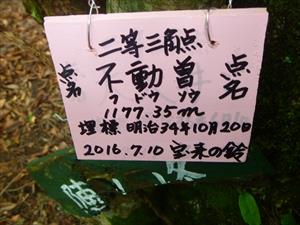 二等三角点
点名
不動曽
フドウソウ
点名
1177.35m
埋標 明治34年10月20日
2016.7.10 宝来の鈴